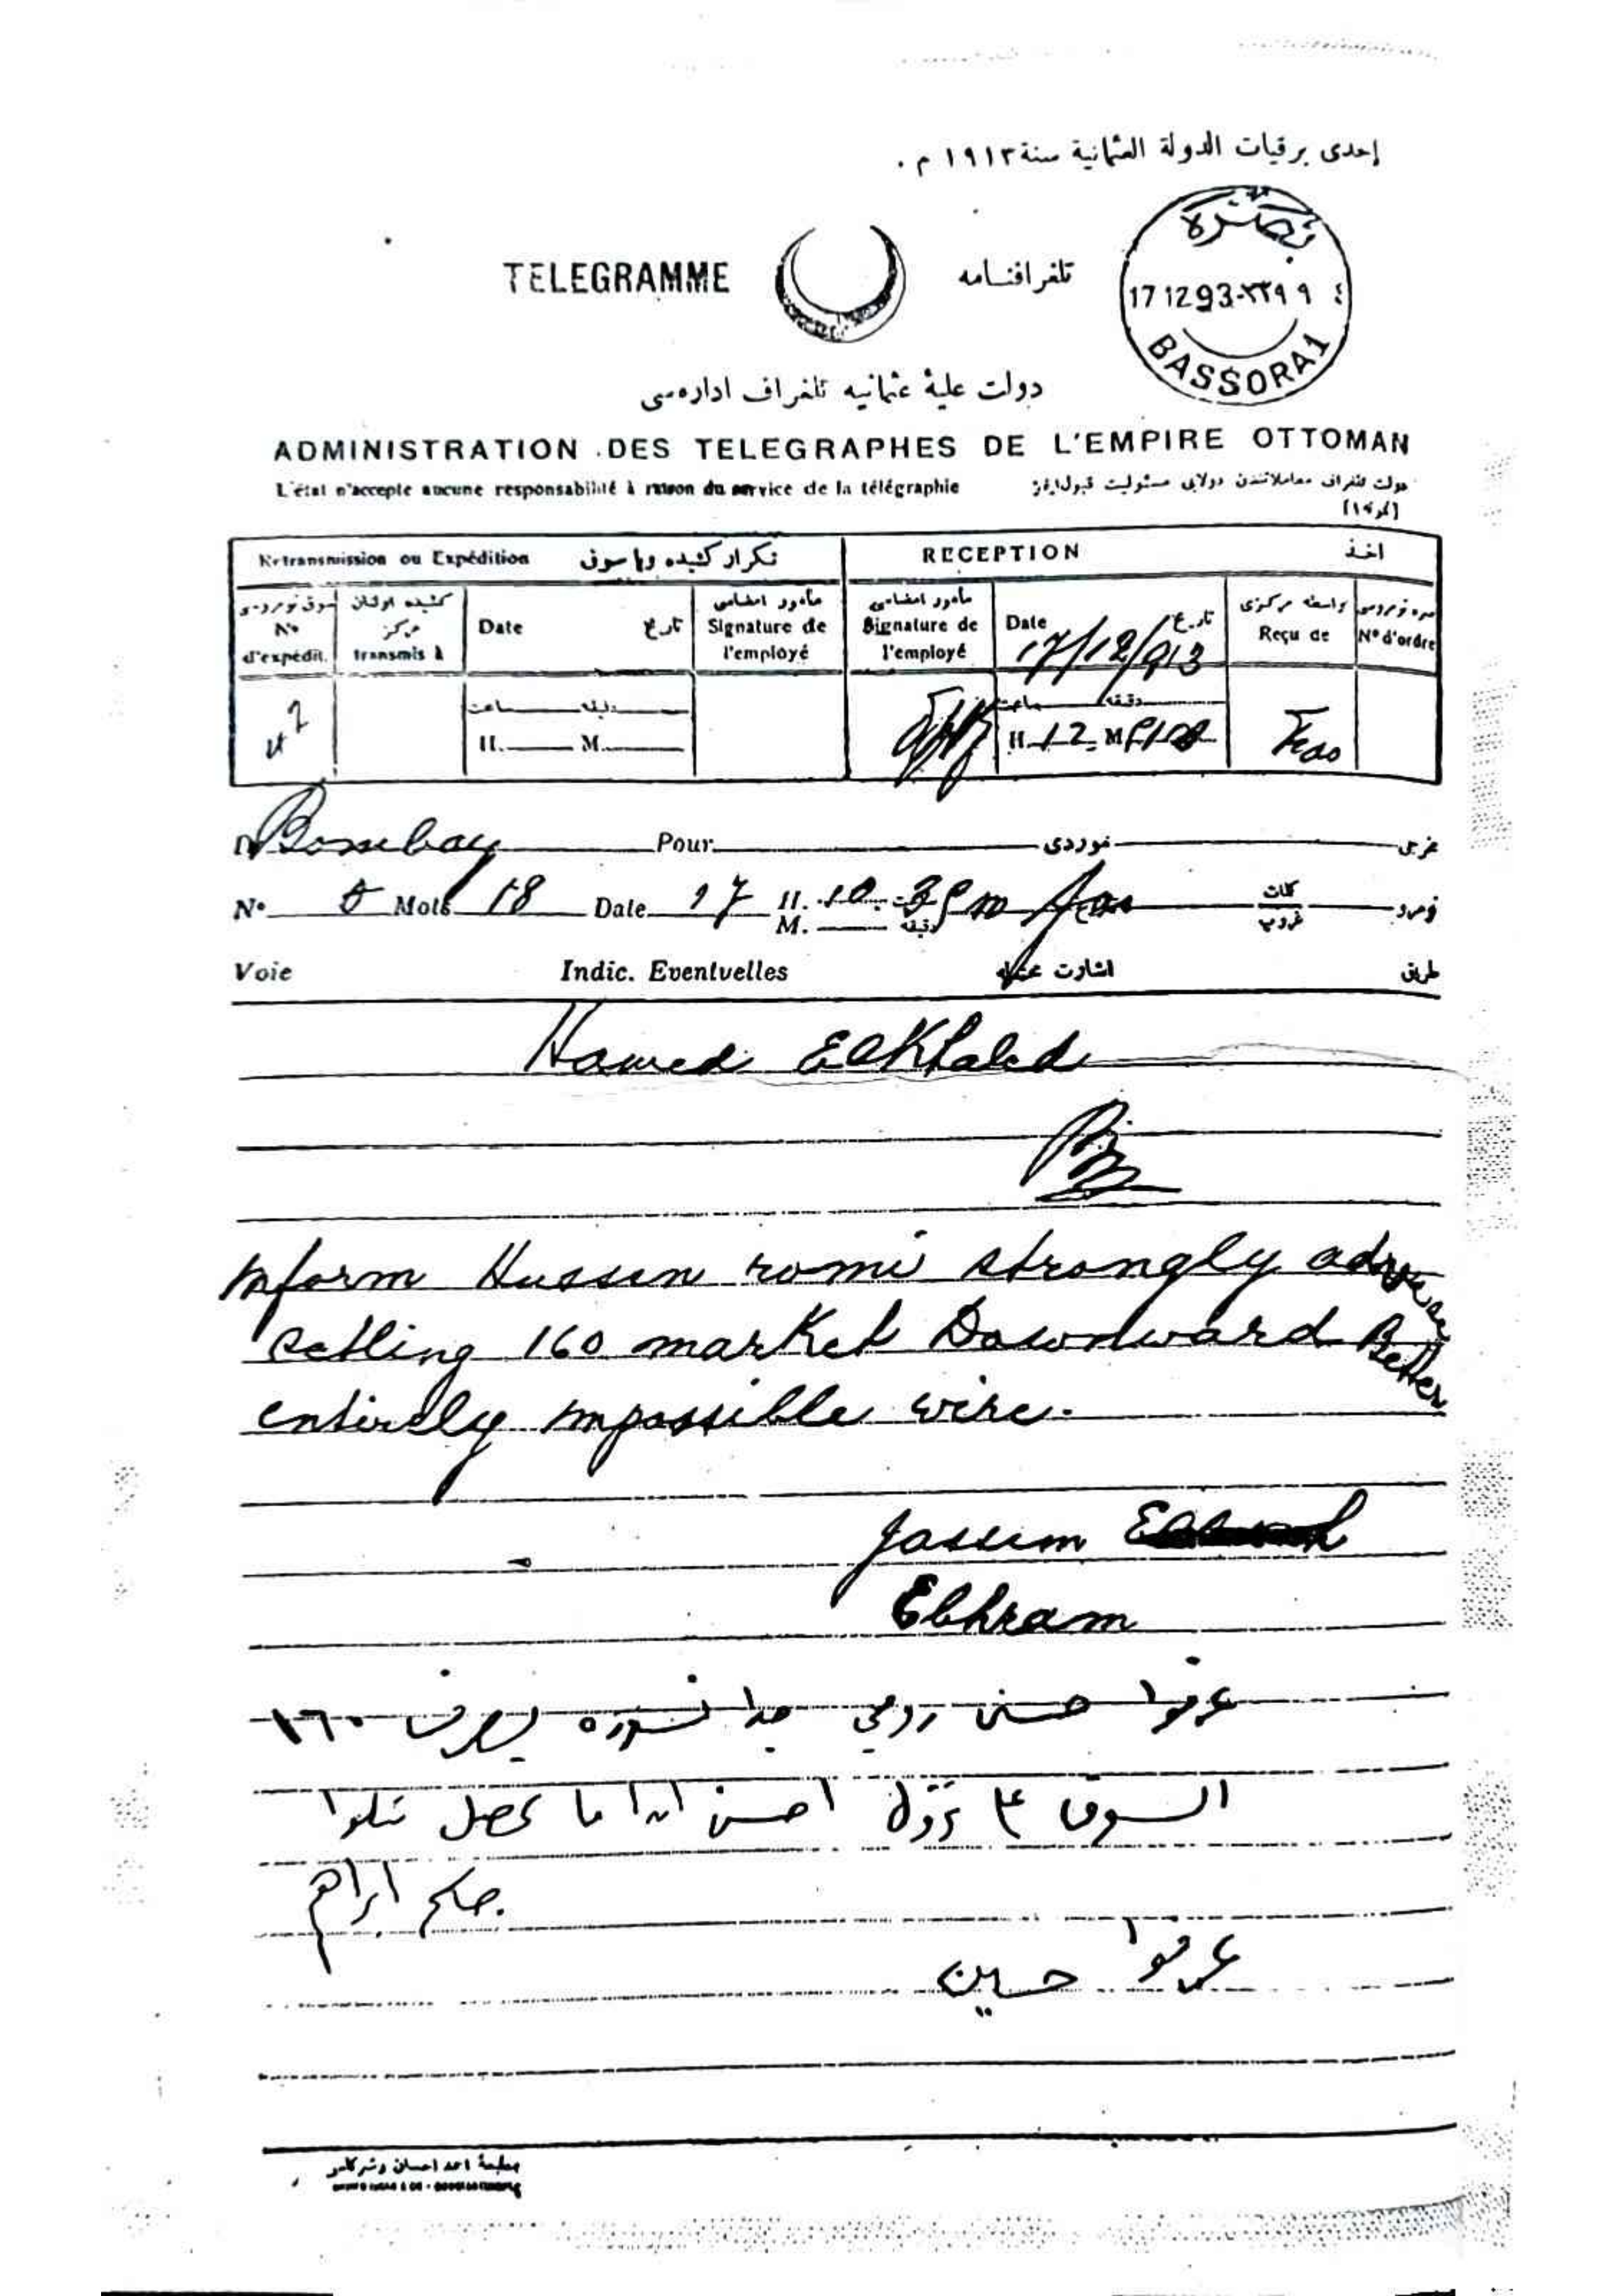 إحدى برقيات الدولة العثمانية سنة ١٩١٣ م .
TELEGRAMME
تلغرافنامه
بصره
17 12 93
BASSORA 1
دولت عليهٔ عثمانيه تلغراف اداره سى
ADMINISTRATION DES TELEGRAPHES DE L'EMPIRE OTTOMAN
L'état n'accepte aucune responsabilité à raison du service de la télégraphie
دولت تلغراف معاملاتندن دولايى مسئوليت قبول ايتمز
Retransmission ou Expédition
RECEPTION
اخذ
Nº d'expédit.
مركز transmis à
Date تاريخ
مأمور امضاسى Signature de l'employé
مأمور امضاسى Signature de l'employé
Date تاريخ 17/12/913
واسطه مركزى Reçu de
Nº d'ordre
ساعت دقيقه
H. M.
ساعت دقيقه
H. 12 M.
Fao
Bombay Pour
Nº 5 Mots 18 Date 17 H. 10 M. fao
كلمات
غروپ
نومرو
Voie Indic. Eventvelles
طريق
Hamed ElKhaled
Inform Hussen romi strongly advise
selling 160 market Downward Better
entirely impossible wire.
Jassim
Ebhram
عرفوا حسين رومي جدا نشوره يصرف ١٦٠
السوق نزول احسن ابدا ما يحصل تتلوا
جاسم ابراهيم
عرفوا حسين
مطبعهٔ احمد احسان وشركاسى